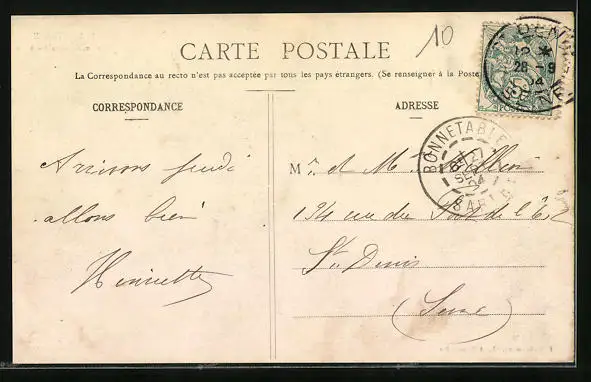 10
CARTE POSTALE
La Correspondance au recto n'est pas acceptée par tous les pays étrangers. (Se renseigner à la Poste
CORRESPONDANCE
ADRESSE
Arrivons jeudi
allons bien
Henriette
Mr. et M
134 rue du Port de l'
St. Denis
(Seine)
BONNETABLE
SARTHE
DENIS
SEINE